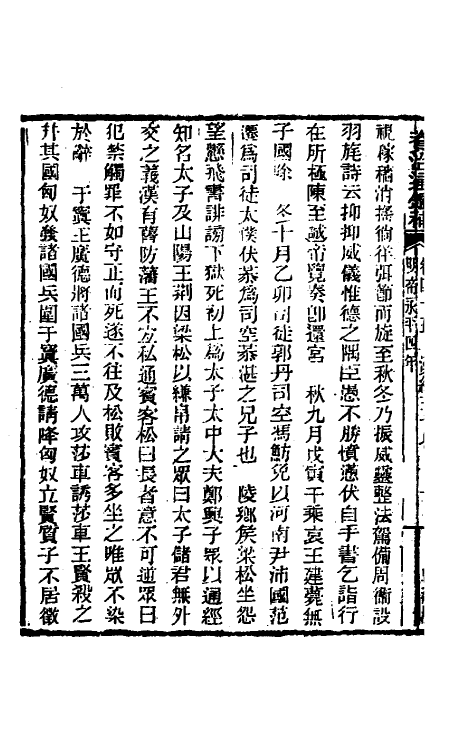 視稼穡消搖徜徉弭節而旋至秋冬乃振威靈整法駕備周衞設
羽旄詩云抑抑威儀惟德之隅臣愚不勝憤懣伏自手書乞詣行
在所極陳至誠帝覽奏卽還宮　秋九月戊寅千乘哀王建薨無
子國除　冬十月乙卯司徒郭丹司空馮魴免以河南尹沛國范
遷爲司徒太僕伏恭爲司空恭湛之兄子也　陵鄉侯梁松坐怨
望懸飛書誹謗下獄死初上爲太子太中大夫鄭興子眾以通經
知名太子及山陽王荆因梁松以縑帛請之眾曰太子儲君無外
交之義漢有舊防藩王不宜私通賓客松曰長者意不可逆眾曰
犯禁觸罪不如守正而死遂不往及松敗賓客多坐之唯眾不染
於辭　于窴王廣德將諸國兵三萬人攻莎車誘莎車王賢殺之
并其國匈奴發諸國兵圍于窴廣德請降匈奴立賢質子不居徵